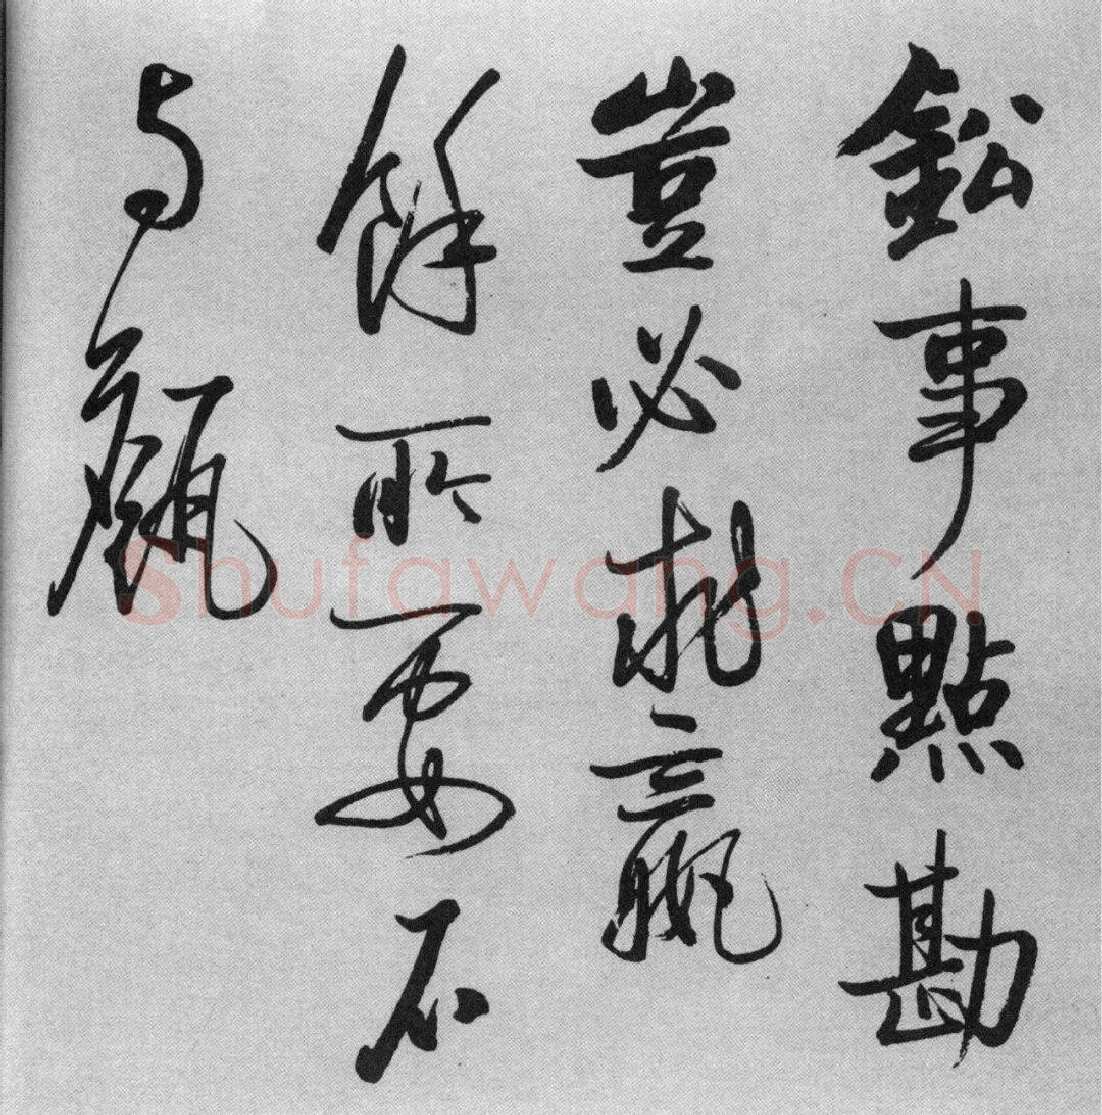 鈆事點勘
豈必贏
餘所要石
与甔
Shufawang.CN